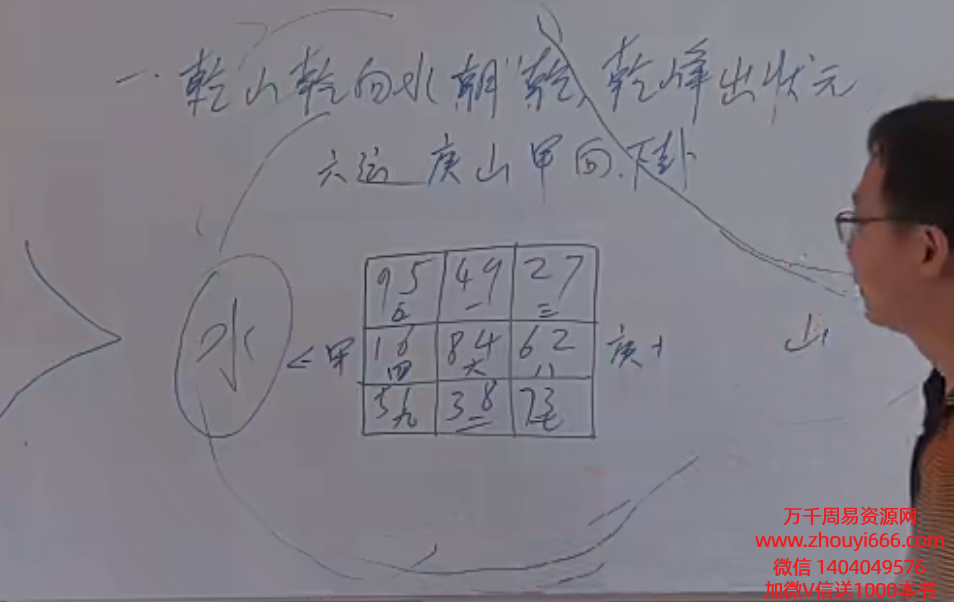 一.乾山乾向水朝乾,乾峰出状元
六运 庚山甲向.下卦
95 49 27
五 一 三
水 <甲 16 84 62 庚+ 山
四 六 八
5 38 73
九 二 七
万千周易资源网
www.zhouyi666.com
微信 1404049576
加微V信送1000本书